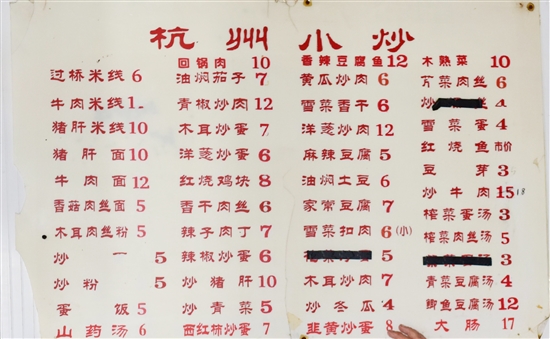 杭州小炒
过桥米线 6
牛肉米线 1
猪肝米线 10
猪肝面 10
牛肉面 12
香菇肉丝面 5
木耳肉丝粉 5
炒一 5
炒粉 5
蛋饭 5
山药汤 6
回锅肉 10
油焖茄子 7
青椒炒肉 12
木耳炒蛋 7
洋葱炒蛋 6
红烧鸡块 8
香干肉丝 6
辣子肉丁 7
辣椒炒蛋 6
炒猪肝 10
炒青菜 5
西红柿炒蛋 7
香辣豆腐鱼 12
黄瓜炒肉 6
雪菜香干 6
洋葱炒肉 6
麻辣豆腐 5
油焖土豆 6
家常豆腐 7
雪菜扣肉 6 (小)
5
木耳炒肉 7
炒冬瓜 4
韭黄炒蛋 8
木熟菜 10
芹菜肉丝 6
炒 4
雪菜蛋 4
红烧鱼 市价
豆芽 3
炒牛肉 15 18
榨菜蛋汤 3
榨菜肉丝汤 5
3
青菜豆腐汤 4
鲫鱼豆腐汤 12
大肠 17